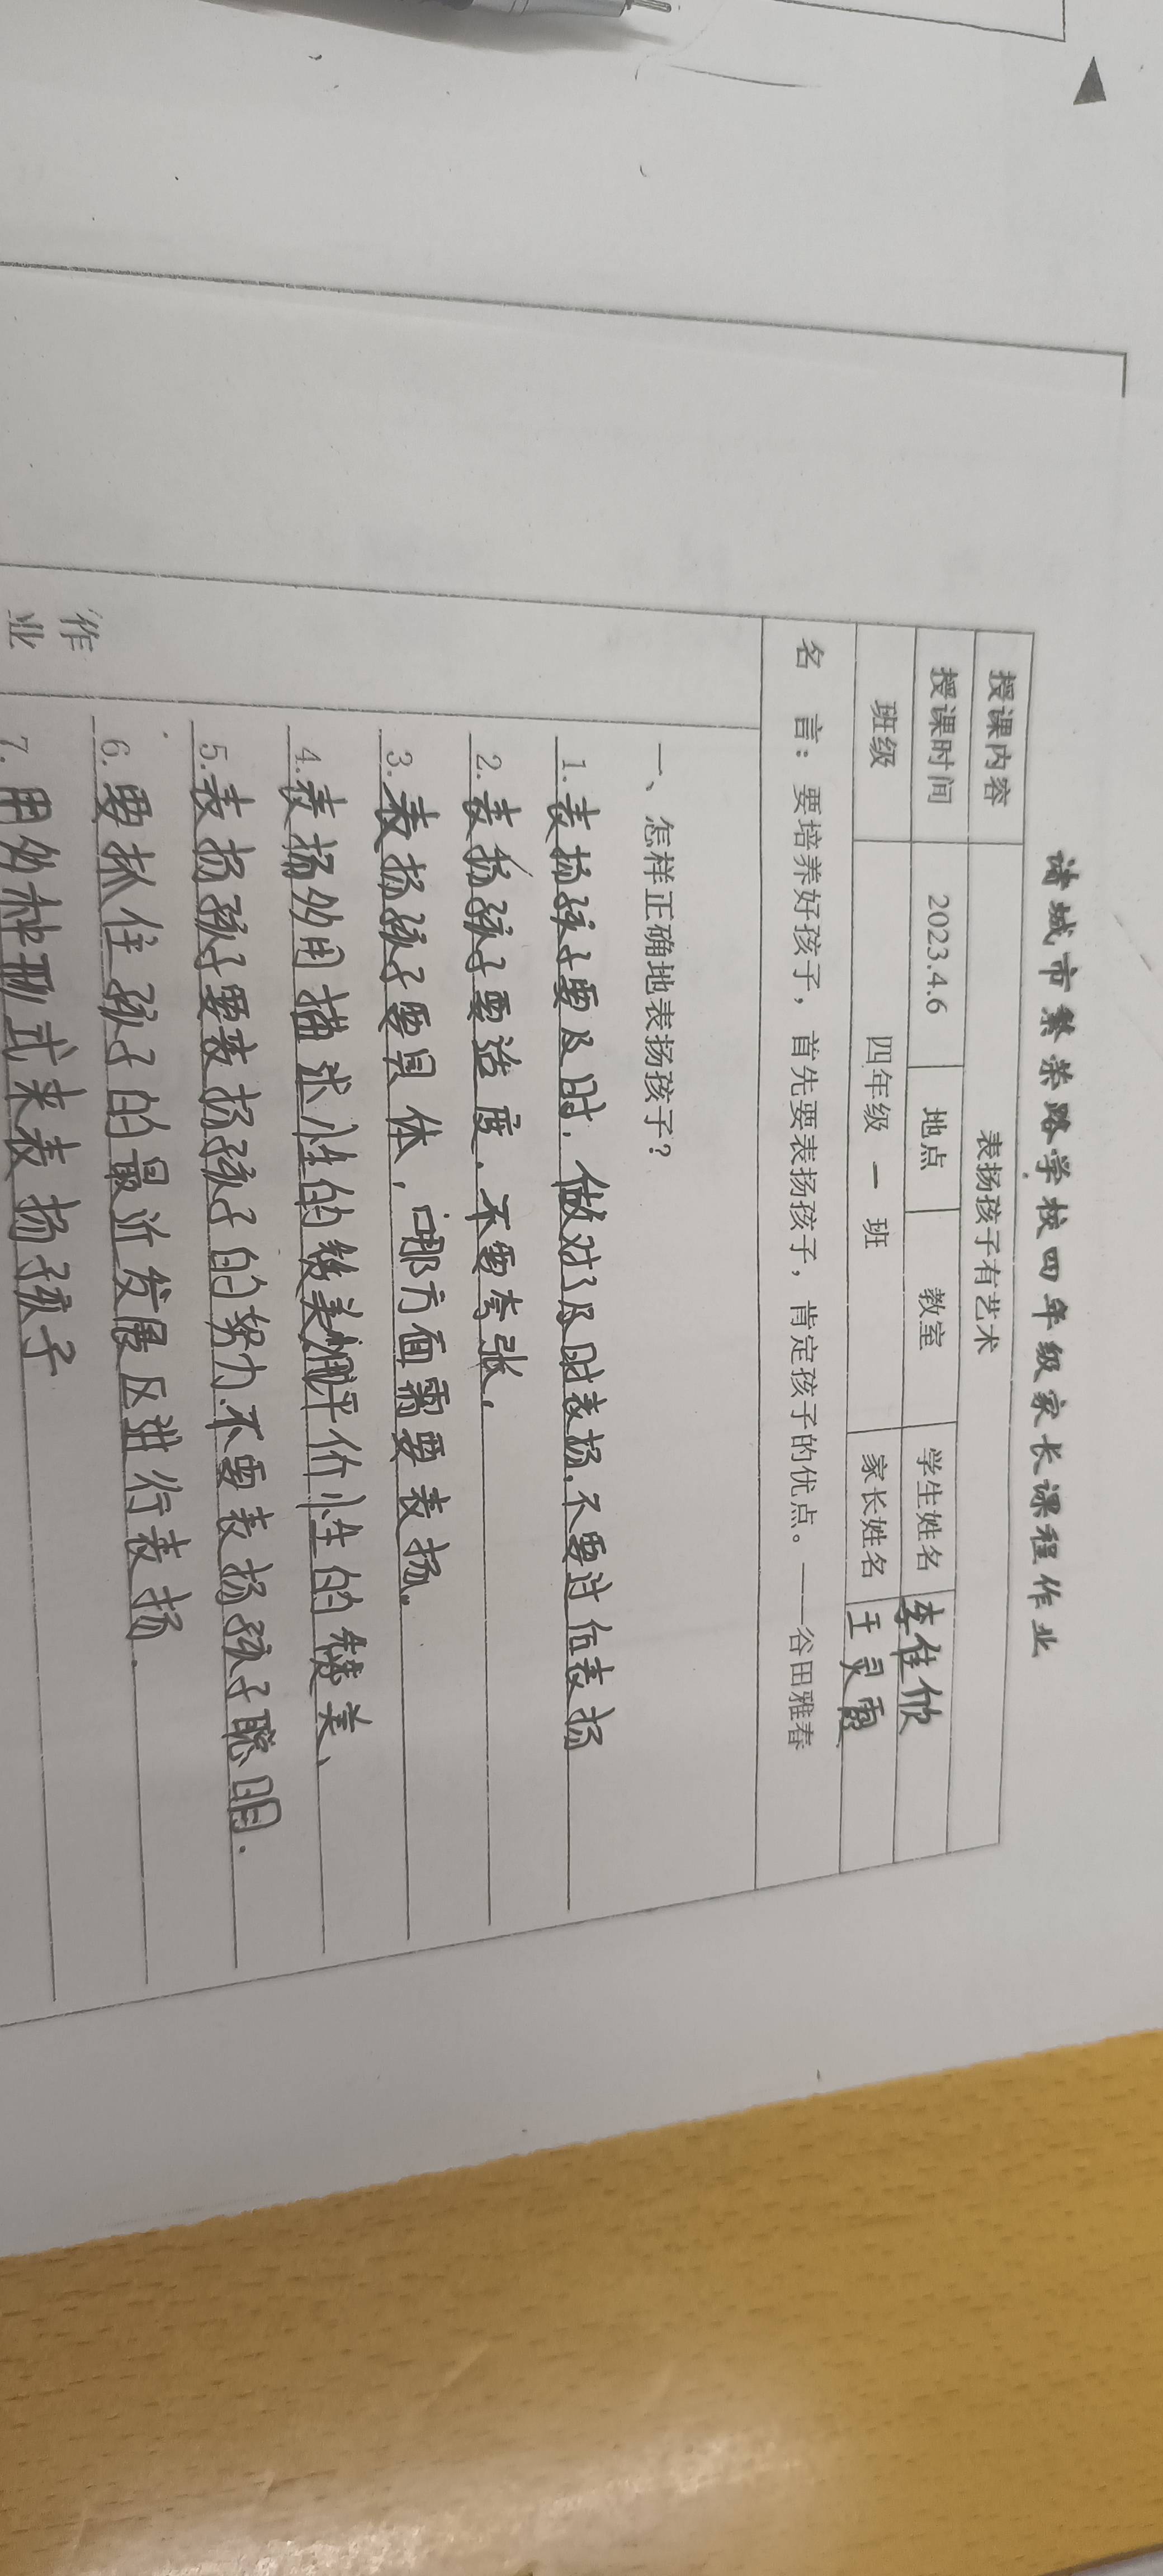 诸城市繁荣路学校四年级家长课程作业
授课内容 表扬孩子有艺术
授课时间 2023.4.6 地点 教室 学生姓名 李佳欣
班级 四年级 一 班 家长姓名 王灵霞
名 言：要培养好孩子，首先要表扬孩子，肯定孩子的优点。——谷田雅春
一、怎样正确地表扬孩子？
1.表扬孩子要及时．做对了及时表扬，不要过后表扬
2.表扬孩子要适度．不要夸张。
3.表扬孩子要具体，哪方面需要表扬。
4.表扬多用描述性的赞美 评价性的赞美、
5.表扬孩子要表扬孩子的努力、不要表扬孩子聪明．
6.要抓住孩子的最近发展区进行表扬．
7.用多种形式来表扬孩子
作
业